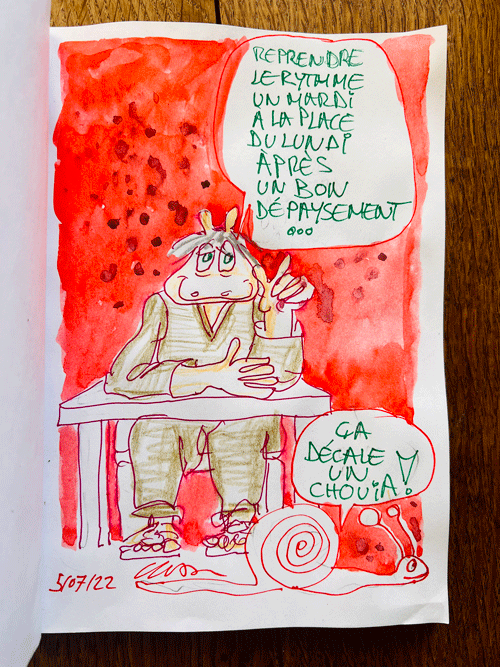 REPRENDRE
LE RYTHME
UN MARDI
A LA PLACE
DU LUNDI
ÀPRÈS
UN BON
DÉPAYSEMENT
...
ÇA
DÉCALE
UN
CHOUÏA !
5/07/22